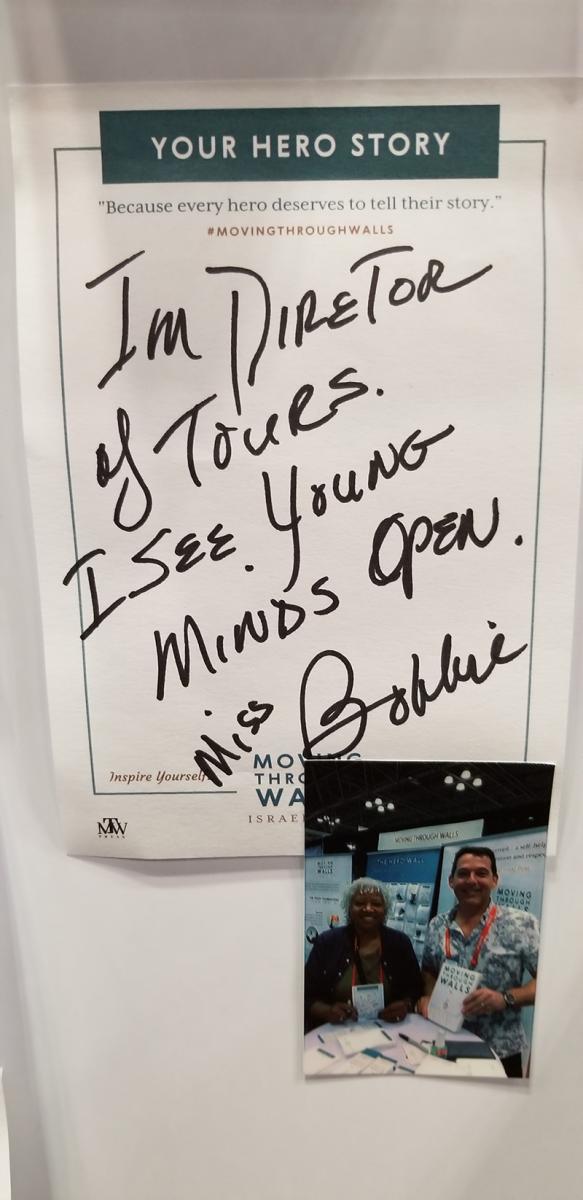 YOUR HERO STORY
"Because every hero deserves to tell their story."
#MOVINGTHROUGHWALLS
Im DIRETOR
of TOURS.
I SEE YOUNG
MINDS OPEN.
Miss Bobbie
Inspire Yourself
MOVING
THRO
WA
ISRAE
MTW
MOVING THROUGH WALLS
THE HERO WALL
MOVING
THROUGH
WALLS
MOVING
THROUGH
WALLS